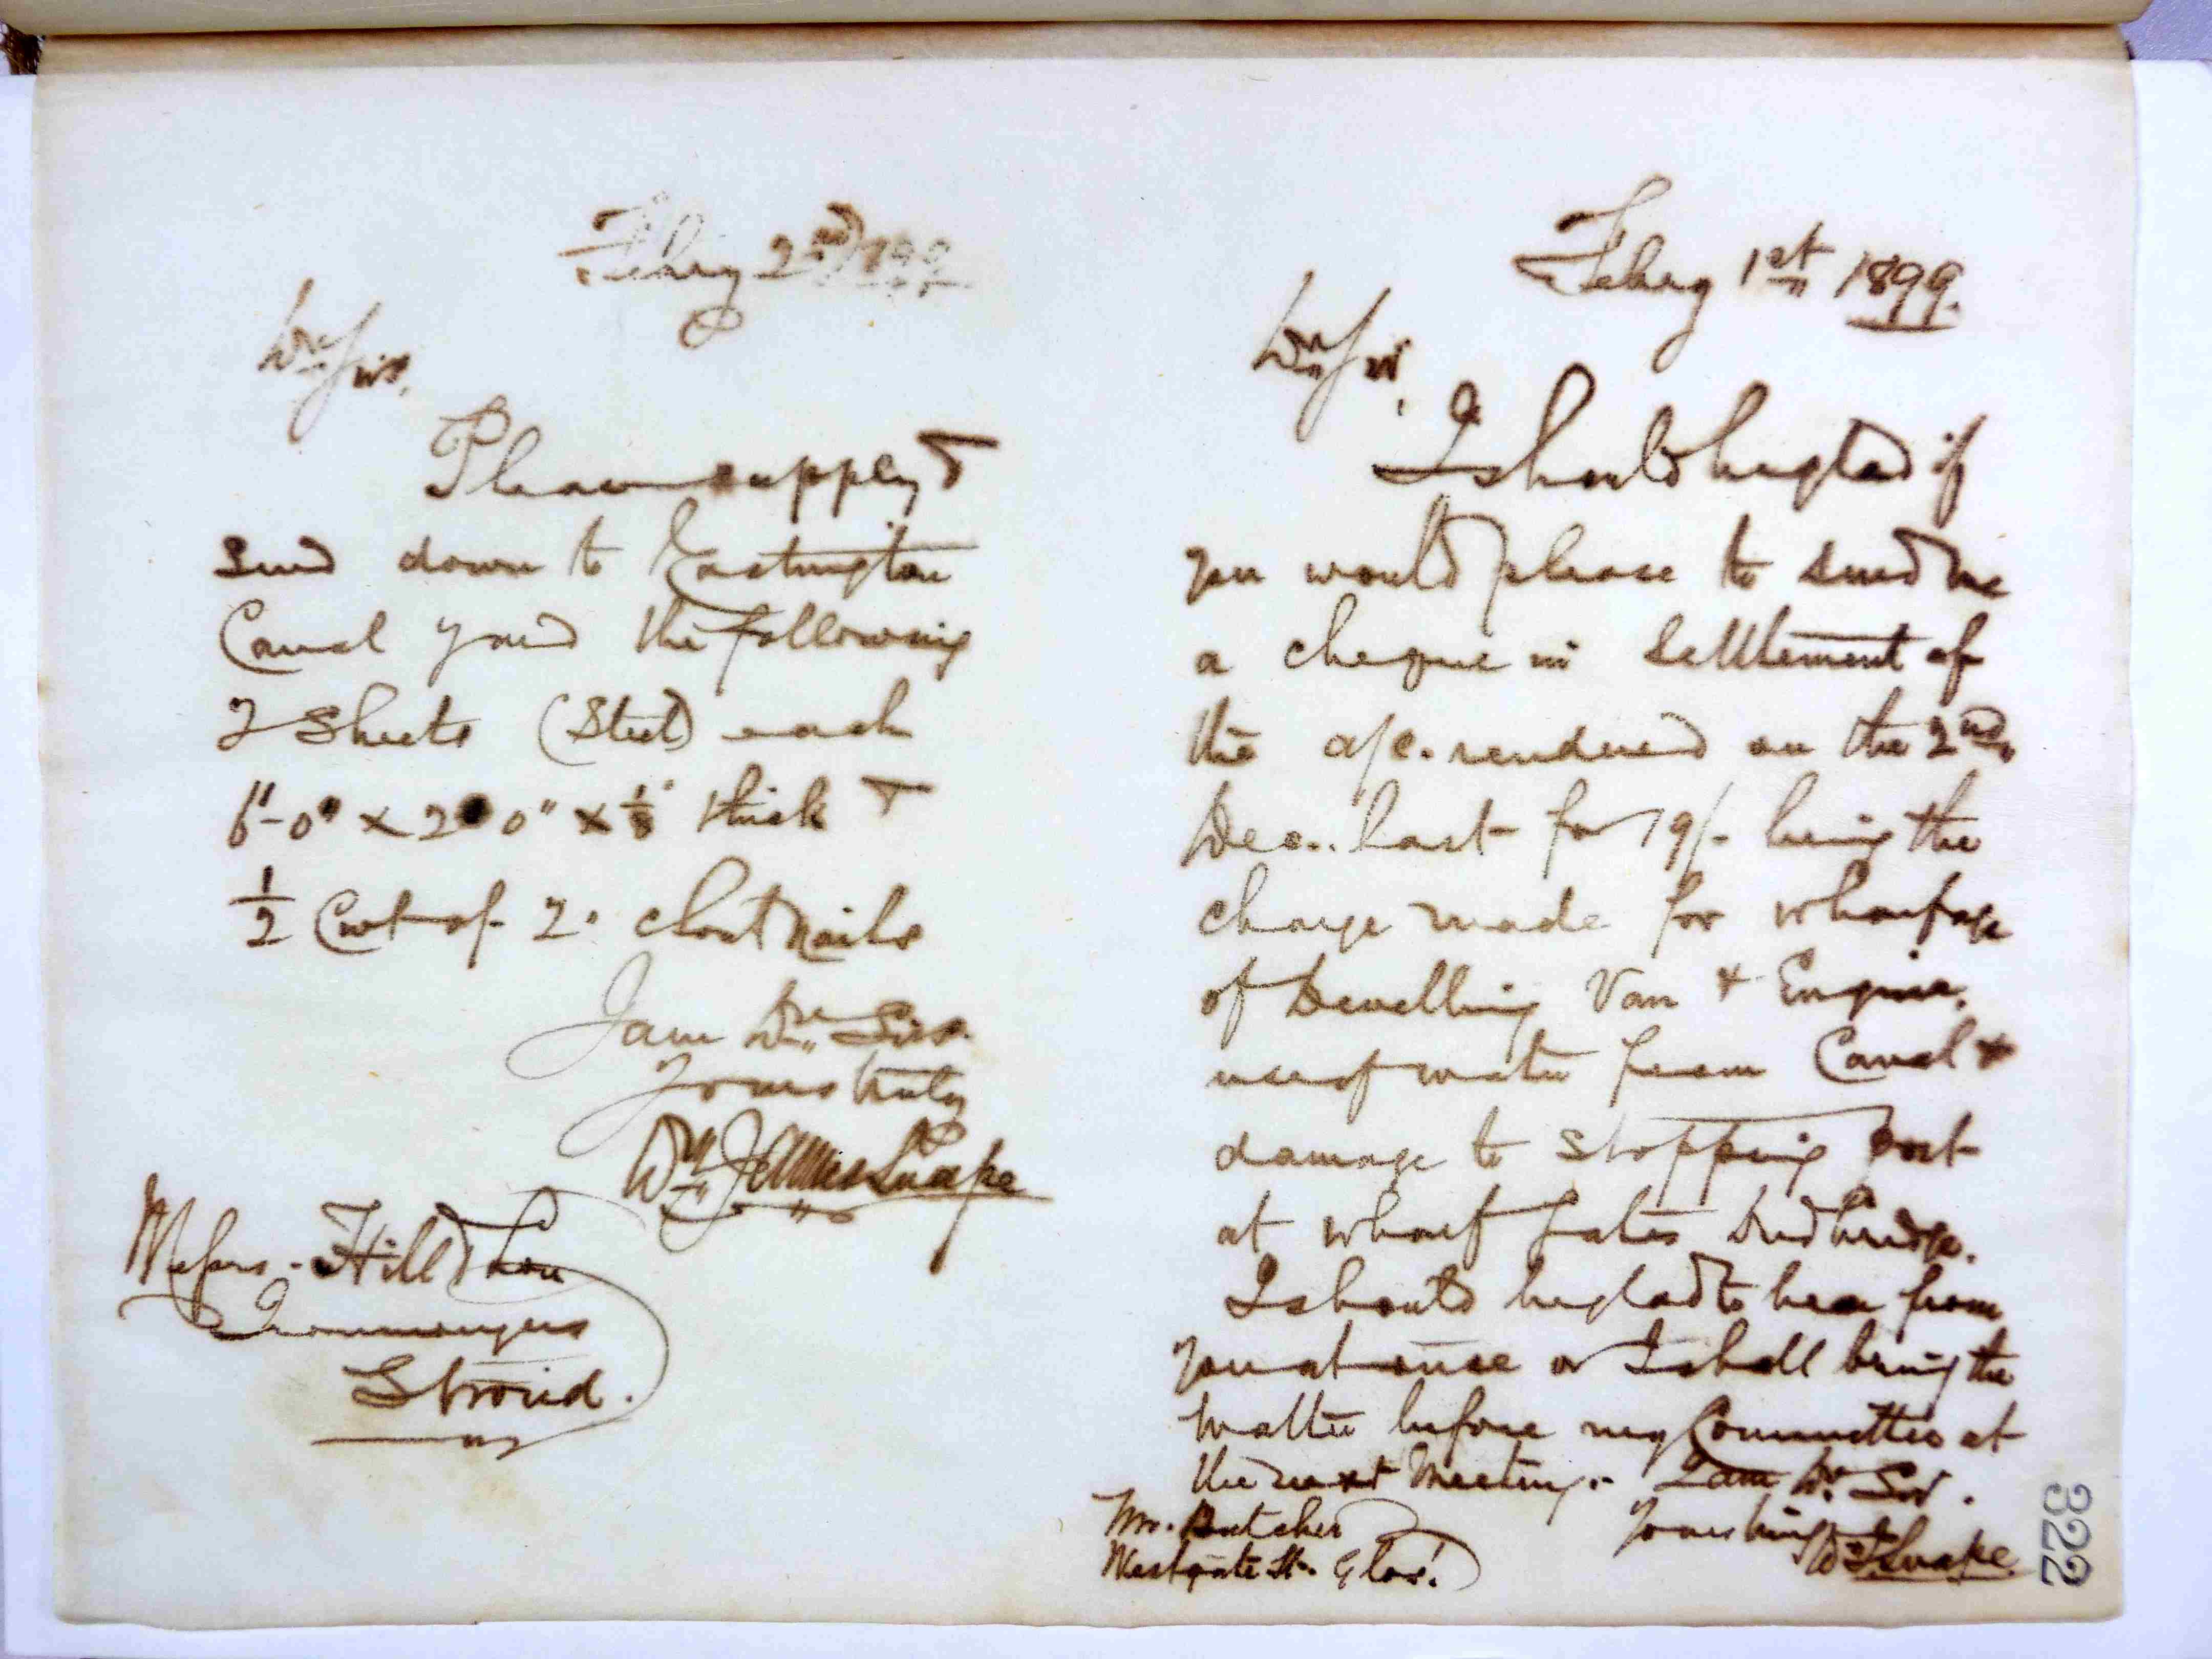 Feby 2nd 1899
Dr Sirs,
Please supply &
send down to Eastington
Canal Yard the following
2 Sheets (Steel) each
6'-0" x 2' 0" x 1/8" thick &
1/2 Cwt of 2" clout nails
I am Dr Sirs.
Yours truly
Wm James Snape
Messrs. Hill & Son
Ironmongers
Stroud.
Feby 1st 1899.
Dr Sir,
I should be glad if
you would please to send me
a cheque in settlement of
the a/c. rendered on the 2nd
Dec. last for 19/- being the
charge made for wharfage
of Dwelling Van & Engine,
use of water from Canal &
damage to stopping post
at wharf gates Dudbridge.
I should be glad to hear from
you at once or I shall bring the
matter before my Committee at
the next Meeting. I am Dr. Sir.
Yours truly
Wm J Snape.
Mr. Butcher
Westgate St. Glos!
322